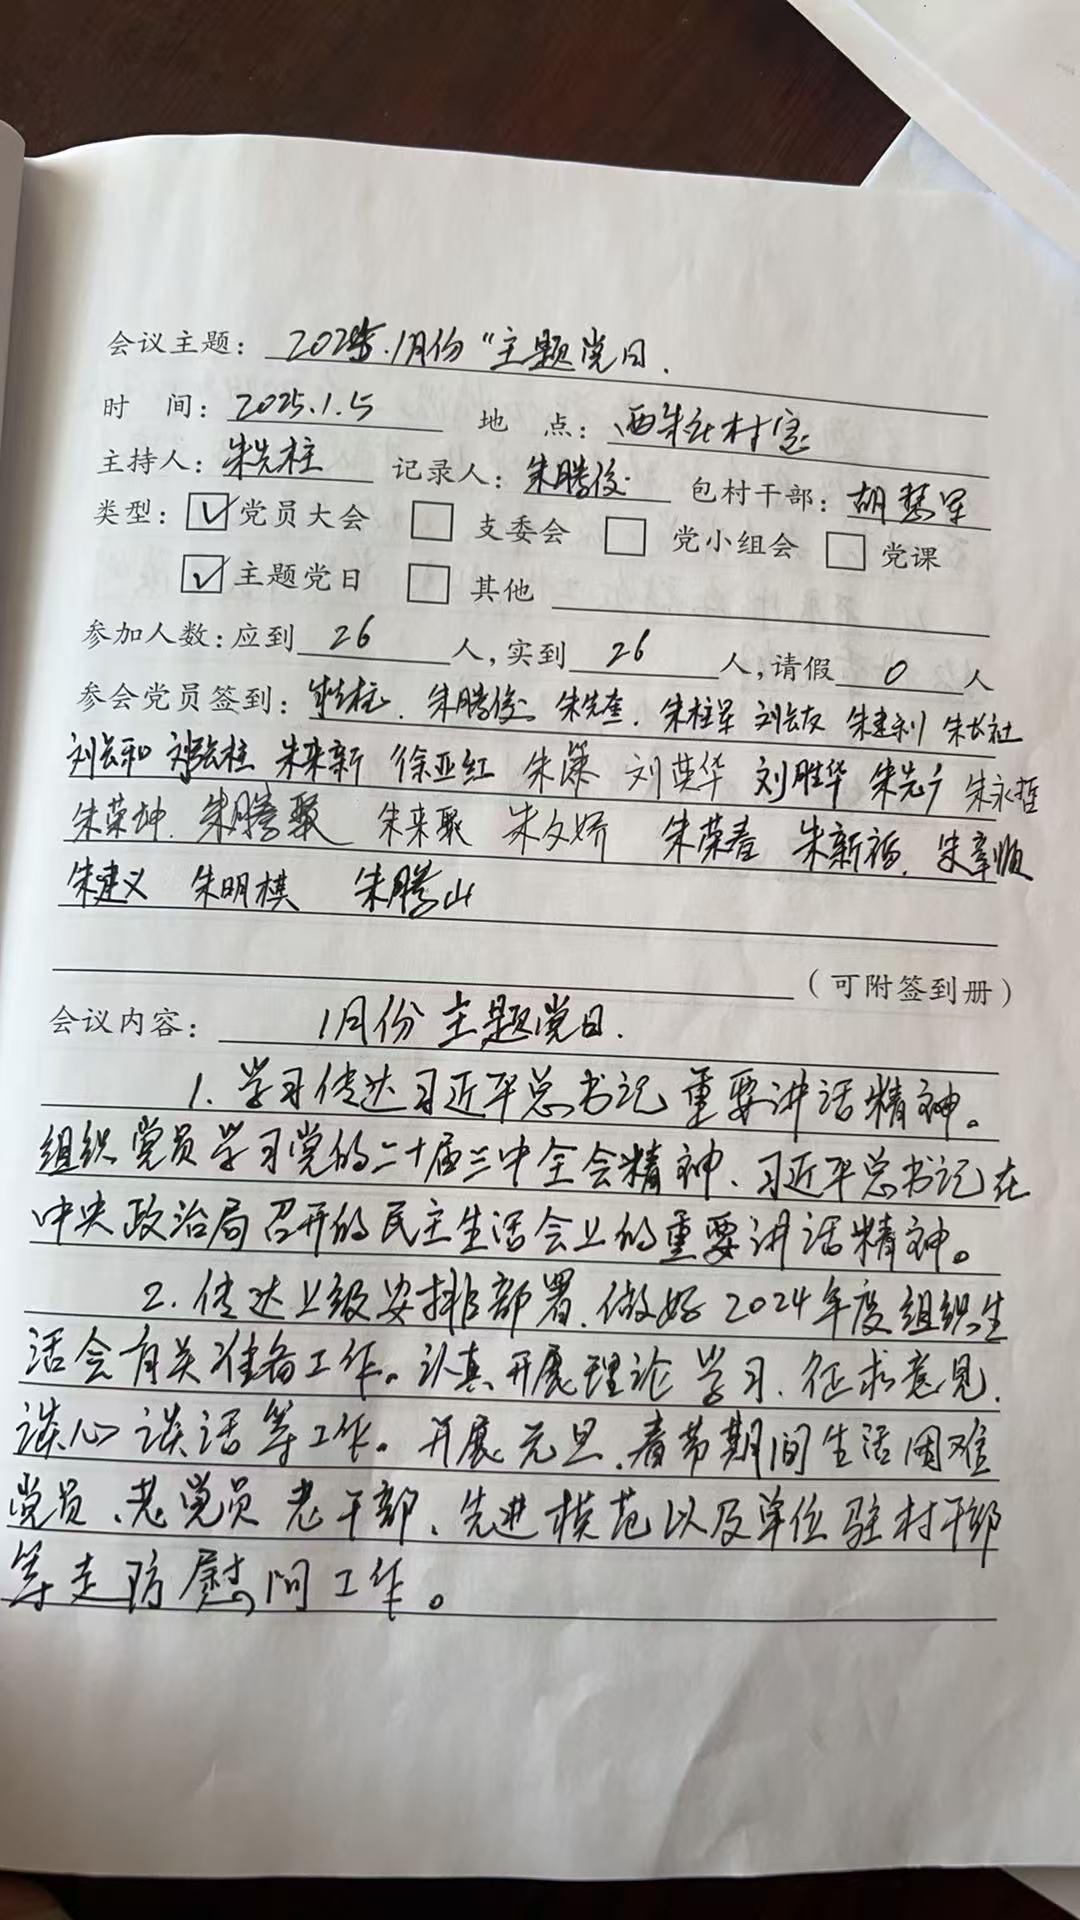 会议主题： 2025年.1月份“主题党日.
时 间： 2025.1.5 地 点： 西朱社村室
主持人： 朱先柱 记录人： 朱腾俊 包村干部： 胡慧军
类型： ☑党员大会 □ 支委会 □ 党小组会 □ 党课
☑主题党日 □ 其他
参加人数：应到 26 人，实到 26 人，请假 0 人
参会党员签到： 朱先柱. 朱腾俊 朱先奎. 朱柱军 刘长友 朱建利 朱长社
刘长和 刘长柱 朱来新 徐亚红 朱 刘英华 刘胜华 朱先广 朱永哲
朱荣坤. 朱腾聚 朱来聚 朱文娇 朱荣春 朱新福. 朱章顺
朱建义 朱明棋 朱腾山
（可附签到册）
会议内容： 1月份主题党日.
1. 学习传达习近平总书记重要讲话精神。
组织党员学习党的二十届三中全会精神、习近平总书记在
中央政治局召开的民主生活会上的重要讲话精神。
2. 传达上级安排部署、做好2024年度组织生
活会有关准备工作。认真开展理论学习、征求意见、
谈心谈话等工作。开展元旦、春节期间生活困难
党员、老党员老干部、先进模范以及单位驻村干部
等走防慰问工作。